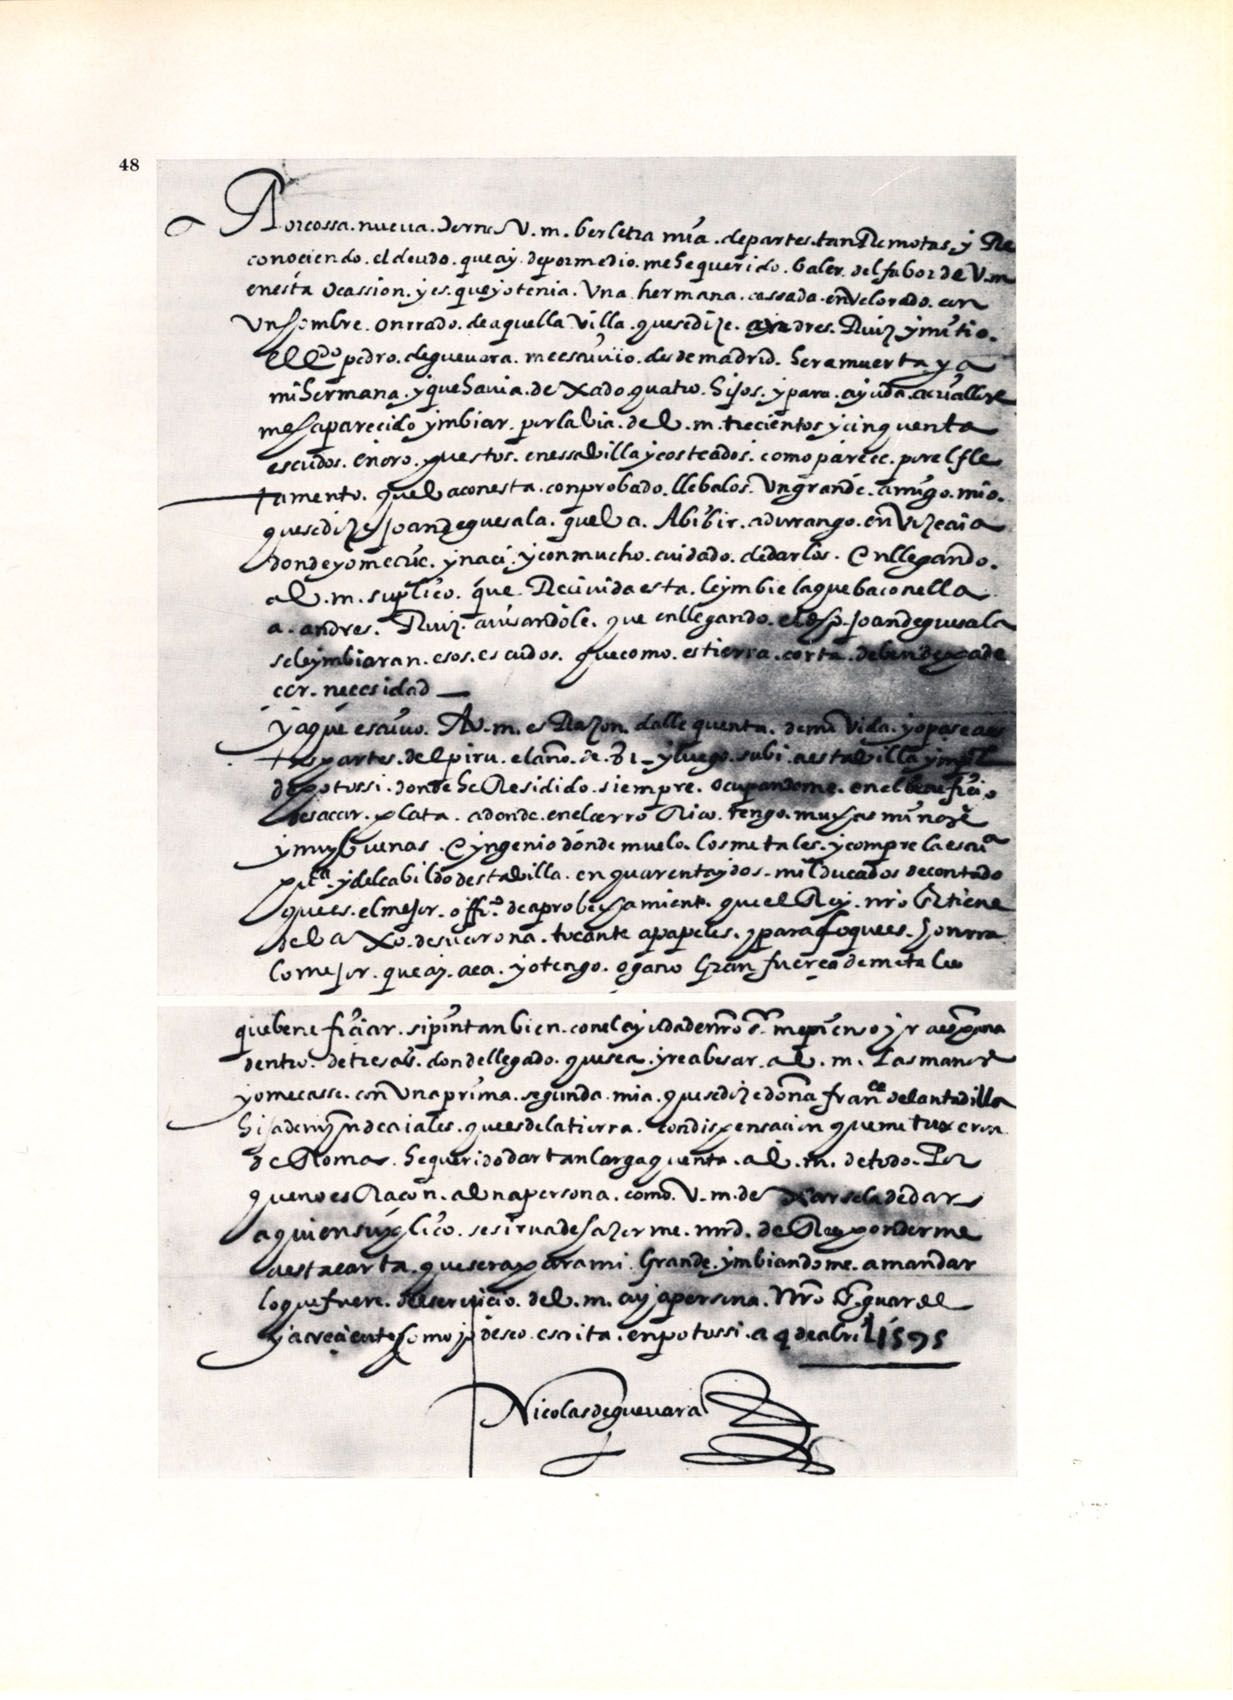 48
Por cossa. nueva. terna V. m. ber letra mia. de partes. tan Remotas, y Re
conociendo. el deudo. que ay. de por medio. me he querido. baler. del fabor de V. m
en esta ocassion. y es. que yo tenia. Una hermana. cassada. en velorado. con
un hombre. onrrado. de aquella villa. que se dize. andres. Ruiz y mi tio.
el Ldo pedro. de guevara. me escrivio. desde madrid. hera muerta ya
mi hermana. y que havia. dexado quatro. hijos. y para. ayuda
me ha parecido ymbiar. por la via. de V. m. trecientos y cinquenta
escudos. en oro. puestos. en essa villa y costeados. como parece. por el fle
tamento. que va con esta. comprobado. llebalos. Un grande. amigo. mio.
que se dize Joan de guesala. que va. A bibir. a durango. en Vizcaia
donde yo me crie. y naci. y con mucho. cuidado. de darlos. En llegando.
a V. m. suplico. que. Recivida esta. le ymbie la que ba con ella
a. andres. Ruiz. avisandole. que en llegando. el dho. Joan de guesala
se le ymbiaran. esos. escudos. que como. es tierra. corta. deben de pade
cer. necesidad
Y a que escrivo. A V. m. es Razon. dalle quenta. de mi Vida. yo pase a es
tas partes. del piru. el año. de. 81 y luego. subi. a esta villa ymperial
de potossi. donde he Residido. siempre. ocupandome. en el beneficio
de sacar. plata. a donde. en el cerro Rico. tengo. muchas minas
y muy buenas. E yngenio donde muelo. los metales. y compre la escriva
pca. y del cabildo desta villa. en quarenta y dos. mil ducados de contado
que es. el mejor. offio. de aprobechamiento. que el Rey. nro Sr tiene
debaxo. de su corona. tocante a papeles. y para lo que es. honrra
lo mejor. que ay. aca. yo tengo. ogaño Gran fuerça de metales
que beneficiar. si pintan bien. con el ayuda de nro Sr. me pienso yr a españa
dentro. de tres años. donde llegado. que sea. yre a besar. a V. m. Las manos
yo me casse. con Una prima. segunda. mia. que se dize doña franca de lantadilla
hija de min de caiales. que es de la tierra. con dispensacion que me tuxeron
de Roma. he querido dar tan larga quenta. a V. m. de todo. Por
que no es Racon. a Una persona. como. V. m. dexarsela de dar
a quien suplico. se sirva de hazerme. mrd. de Responderme
a esta carta. que sera para mi. Grande. ymbiandome. a mandar
lo que fuere. del servicio. de V. m. cuya persona. Nro Sr. guarde
y acreciente como yo deseo. escrita. en potossi. a 4 de abril 1595
Nicolas de guevara